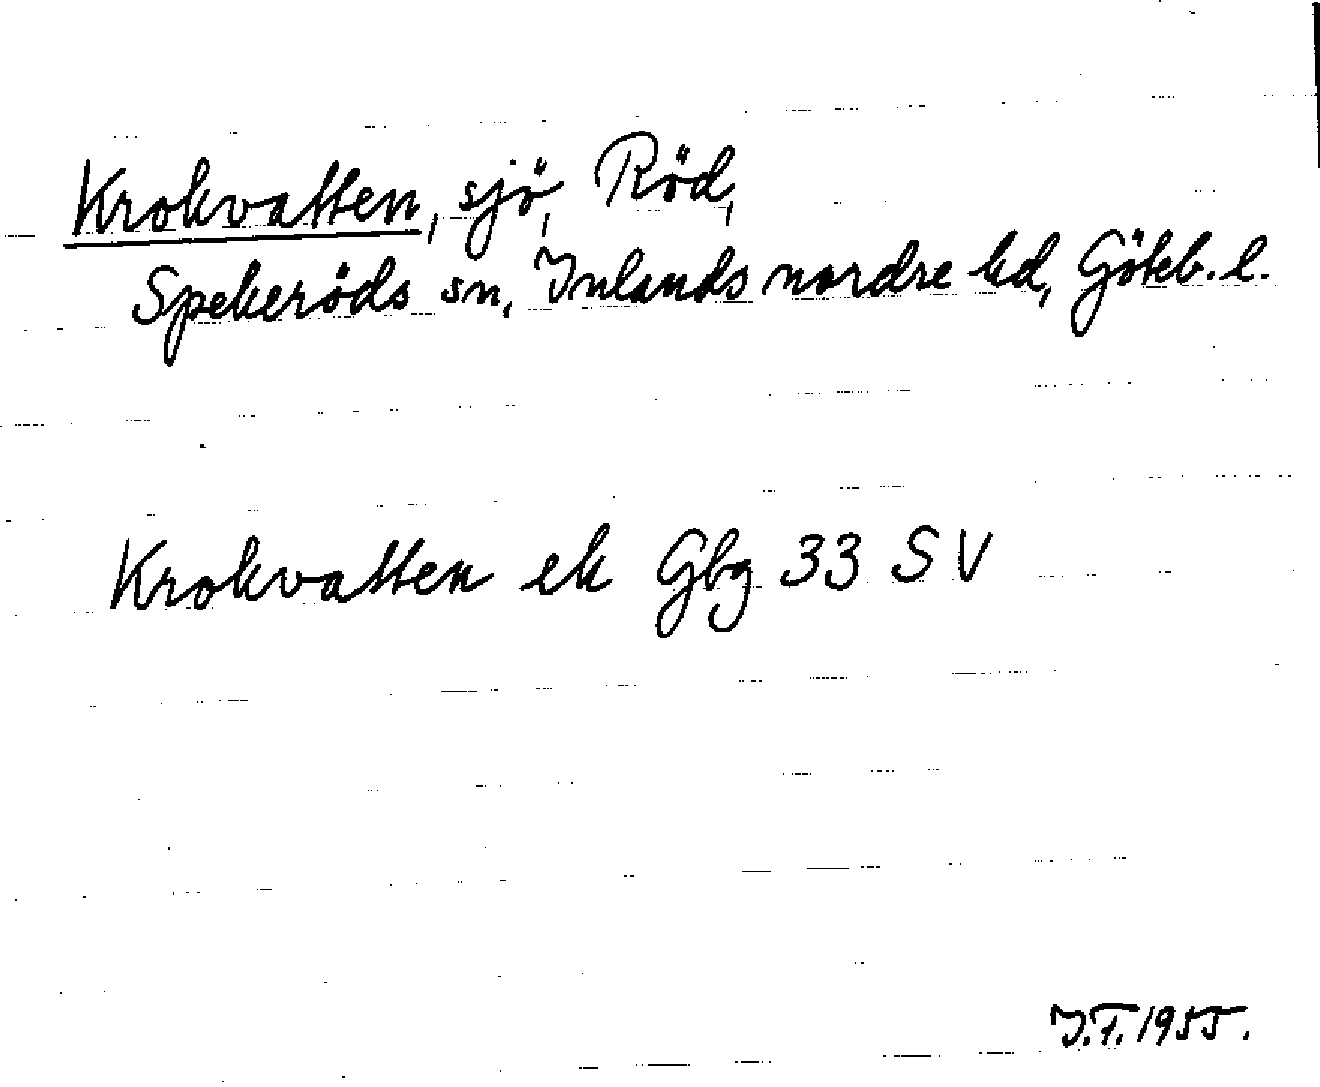 Krokvatten, sjö, Röd,
Spekeröds sn, Inlands nordre hd, Göteb. l.
Krokvatten ek Gbg 33 SV
I.F. 1955.